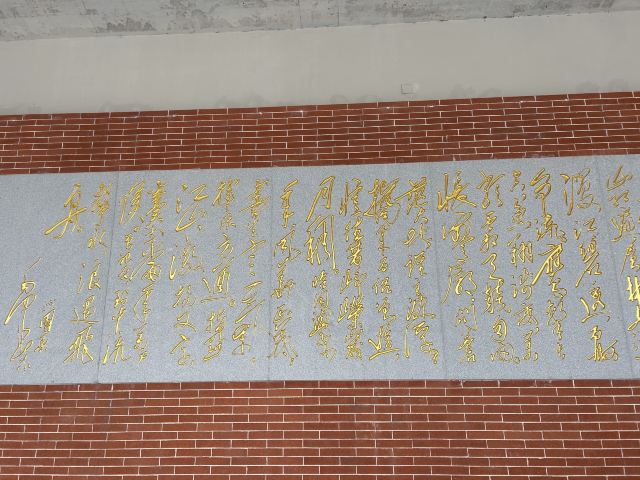 漫江碧透百舸
争流鹰击长空
鱼翔浅底万
类霜天竞自由
怅寥廓问苍
茫大地谁主沉浮
携来百侣曾游
忆往昔峥嵘岁
月稠恰同学少
年风华正茂
书生意气挥
斥方遒指点
江山激扬文字
粪土当年万户
侯曾记否到中流
击水浪遏飞
舟
毛泽东